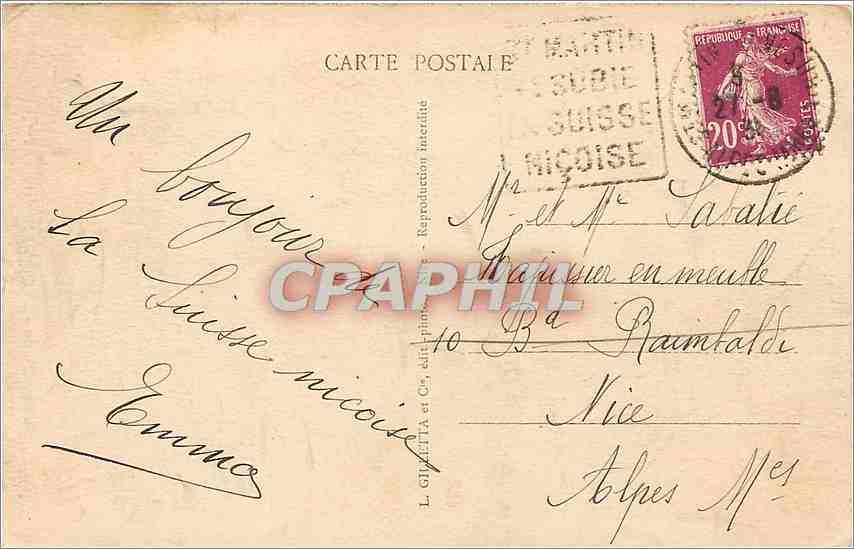 CARTE POSTALE
ST MARTIN
VÉSUBIE
LA SUISSE
NIÇOISE
REPUBLIQUE FRANÇAISE
20c
POSTES
21 -8
Un bonjour de
La Suisse niçoise
Emma
L. GILLETTA et Cie, édit.-phot., Nice - Reproduction interdite
Mr et Me Sabatié
Tapissier en meuble
10 Bd Raimbaldi
Nice
Alpes Mes
CPAPHIL